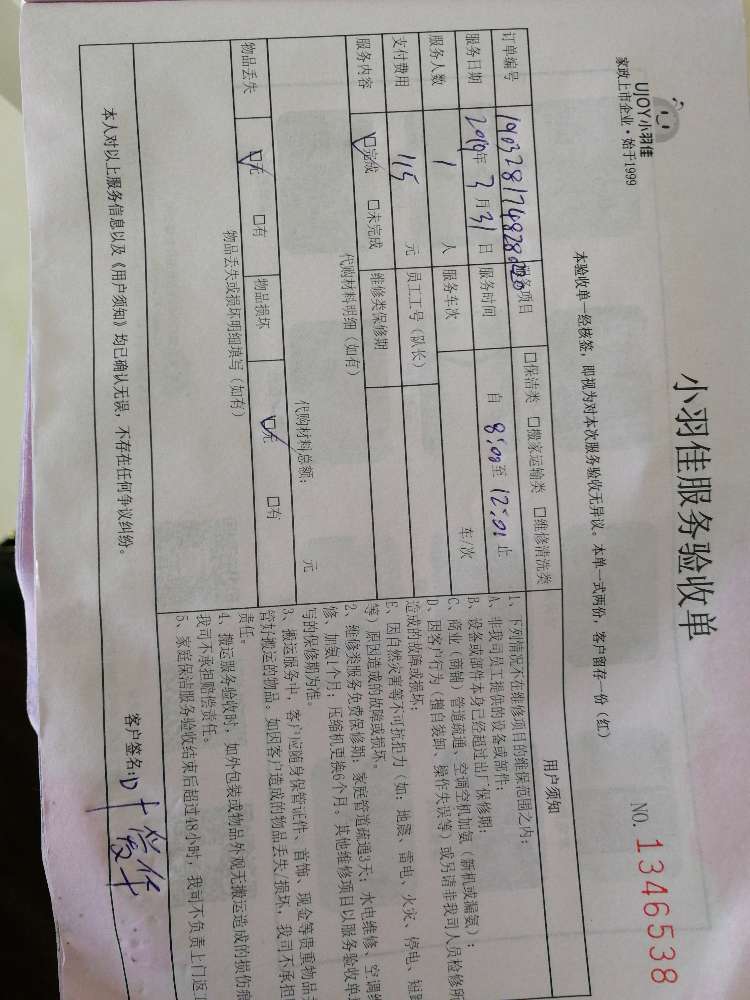 UJOY小羽佳
家政上市企业·始于1999
小羽佳服务验收单
NO. 1346538
本验收单一经核签，即视为对本次服务验收无异议。本单一式两份，客户留存一份（红）
订单编号 服务项目 □保洁类 □搬家运输类 □维修清洗类
服务日期 2019年 3月31日 服务时间 自 8:00 至 12:01 止
服务人数 1 人 服务车次 车/次
支付费用 115 元 员工工号（队长）
服务内容 ☑完成 □未完成 维修类保修期
代购材料明细（如有）
代购材料总额： 元
物品丢失 ☑无 □有 物品损坏 ☑无 □有
物品丢失或损坏明细填写（如有）
用户须知
1、下列情况不在维修项目的维保范围之内：
A、非我司员工提供的设备或部件；
B、设备或部件本身已经超过出厂保修期；
C、商业（商铺）管道疏通、空调空机加氨（新机或漏氨）；
D、因客户行为（擅自装卸、操作失误等）或另请非我司人员检修所
造成的故障或损坏；
E、因自然灾害等不可抗拒力（如：地震、雷电、火灾、停电、短路
等）原因造成的故障或损坏。
2、维修类服务免费保修期：家庭管道疏通3天；水电维修、空调维
修、加氨1个月；压缩机更换6个月。其他维修项目以服务验收单
写的保修期为准。
3、搬运服务中，客户应随身保管证件、首饰、现金等贵重物品
管好搬运的物品。如因客户造成的物品丢失/损坏，我司不承担
责任。
4、搬运服务验收时，如外包装或物品外观无搬运造成的损伤痕
我司不承担赔偿责任。
5、家庭保洁服务验收结束后超过48小时，我司不负责上门返工
本人对以上服务信息以及《用户须知》均已确认无误，不存在任何争议纠纷。
客户签名：叶